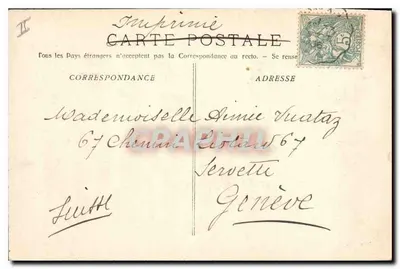 II
Imprimé
CARTE POSTALE
Tous les Pays étrangers n'acceptent pas la Correspondance au recto. — Se
CORRESPONDANCE
ADRESSE
Mademoiselle Aimée Vuataz
67 Chemin 67
Servette
Genève
Suisse